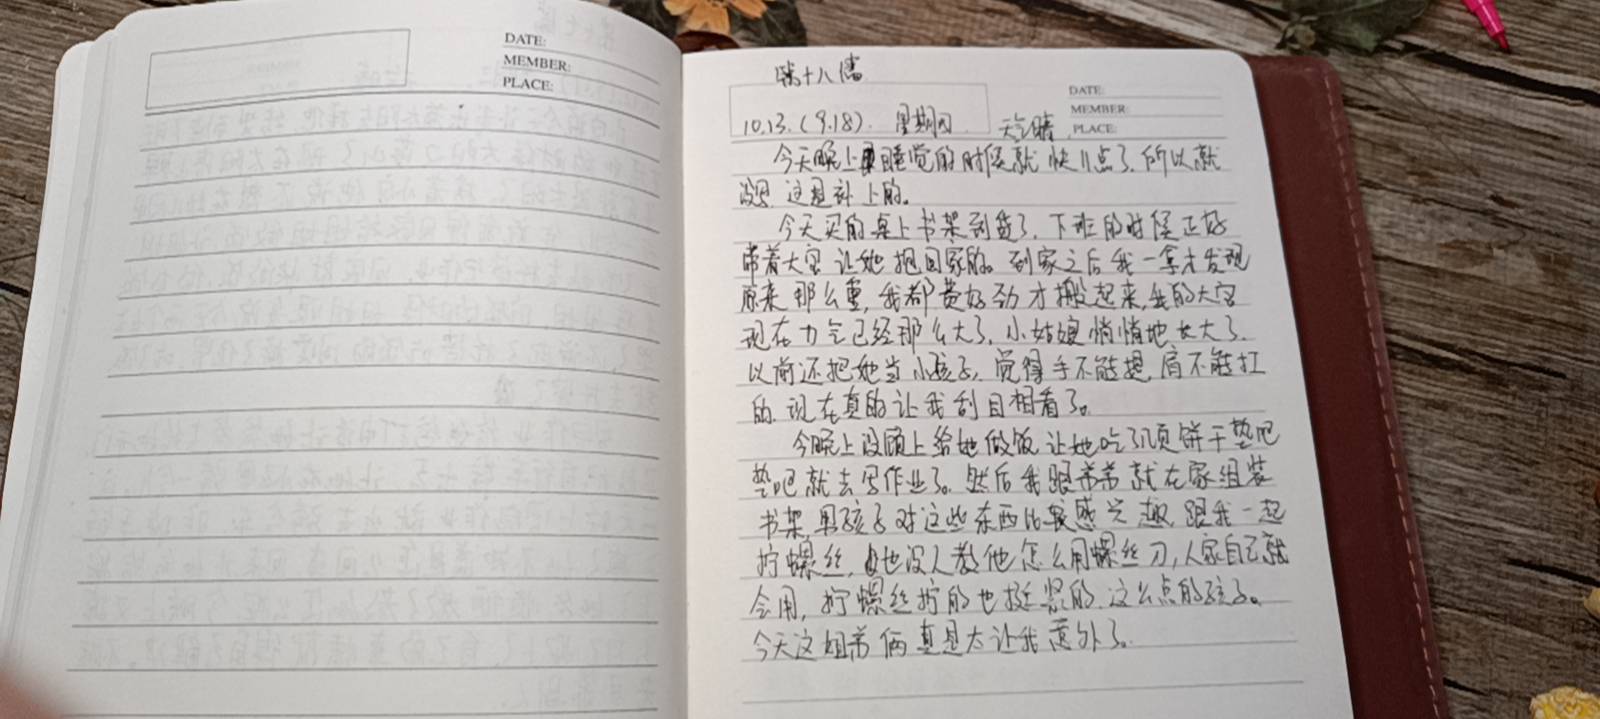 DATE:
MEMBER:
PLACE:
第十八篇
DATE:
MEMBER:
PLACE:
10.13.(9.18). 星期四 天气晴
今天晚上睡觉的时候就快11点了.所以就
没写.这是补上的。
今天买的桌上书架到货了.下班的时候正好
带着大宝让她抱回家的。到家之后我一拿才发现
原来那么重,我都费好劲才搬起来,我的大宝
现在力气已经那么大了,小姑娘悄悄地长大了.
以前还把她当小孩子,觉得手不能提,肩不能扛
的.现在真的让我刮目相看了。
今晚上没顾上给她做饭,让她吃了几页饼干垫吧
垫吧就去写作业了。然后我跟弟弟就在家组装
书架,男孩子对这些东西比较感兴趣,跟我一起
拧螺丝,也没人教他怎么用螺丝刀,人家自己就
会用,拧螺丝拧的也挺紧的.这么点的孩子。
今天这姐弟俩真是太让我意外了。